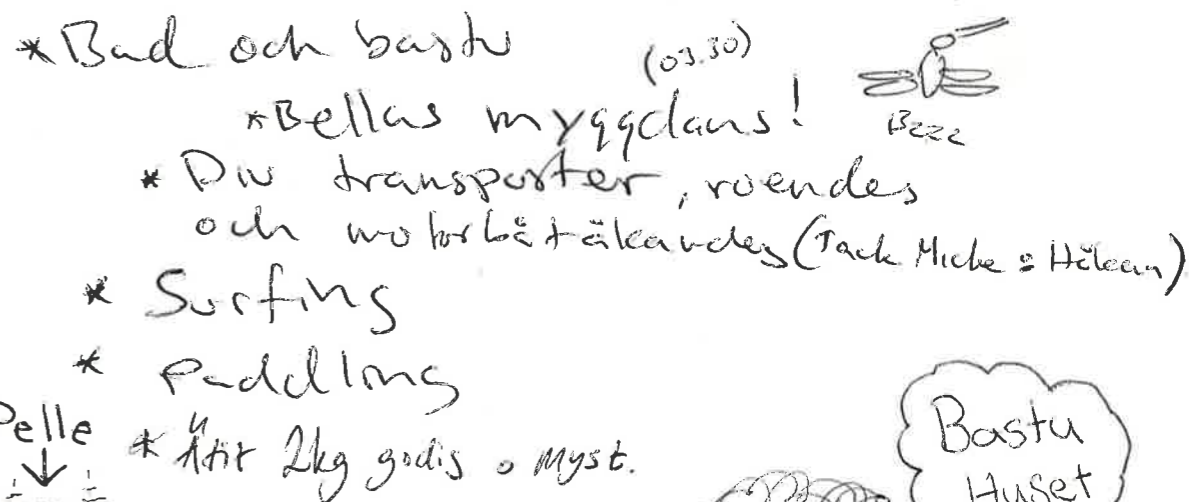 *Bad och bastu
(03.30)
*Bellas myggdans!
Bzzz
* Div transporter, roendes
och motorbåtåkandes (Tack Micke o Håkan)
* Surfing
* Paddling
Pelle
* Ätit 2kg godis o myst.
Bastu
Huset